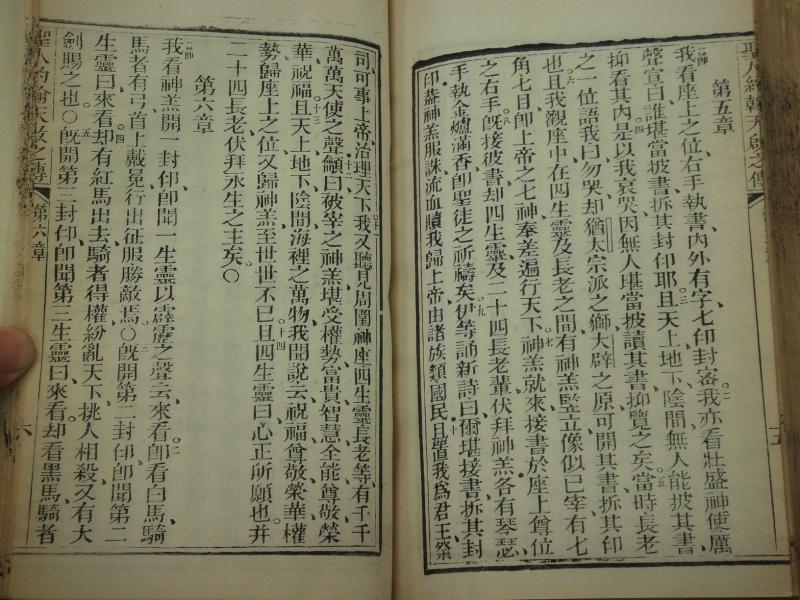 聖人約翰天啟之傳
第五章
我看座上之位右手執書內外有字七印封密我亦看壯盛神使厲
聲宣曰誰堪當披書拆其封印耶且天上地下陰間無人能披其書
抑看其內是以我哀哭因無人堪當披讀其書抑覽之矣當時長老
之一位語我曰勿哭却猶太宗派之獅大辟之原可開其書拆其印
也且我觀座中在四生靈及長老之間有神羔竪立像似已宰有七
角七目卽上帝之七神奉差遍行天下神羔就來接書於座上尊位
之右手旣接彼書却四生靈及二十四長老輩伏拜神羔各有琴瑟
手執金爐滿香卽聖徒之祈禱矣伊等誦新詩曰爾堪接書拆其封
印葢神羔服誅流血贖我歸上帝由諸族類國民且置我爲君王祭
司可事上帝治理天下我又聽見周圍神座四生靈長老等有千千
萬萬天使之聲籲曰被宰之神羔堪受權勢富貴智慧全能尊敬榮
華祝福且天上地下陰間海裡之萬物我聞說云祝福尊敬榮華權
勢歸座上之位又歸神羔至世世不已且四生靈曰心正所願也并
二十四長老伏拜永生之主矣〇
第六章
我看神羔開一封印卽聞一生靈以霹靂之聲云來看卽看白馬騎
馬者有弓首上戴冕行出征服勝敵焉〇旣開第二封印卽聞第二
生靈曰來看却有紅馬出去騎者得權紛亂天下挑人相殺又有大
劍賜之也〇旣開第三封印卽聞第三生靈曰來看却看黑馬騎者
聖人約翰天啟之傳 第六章 六